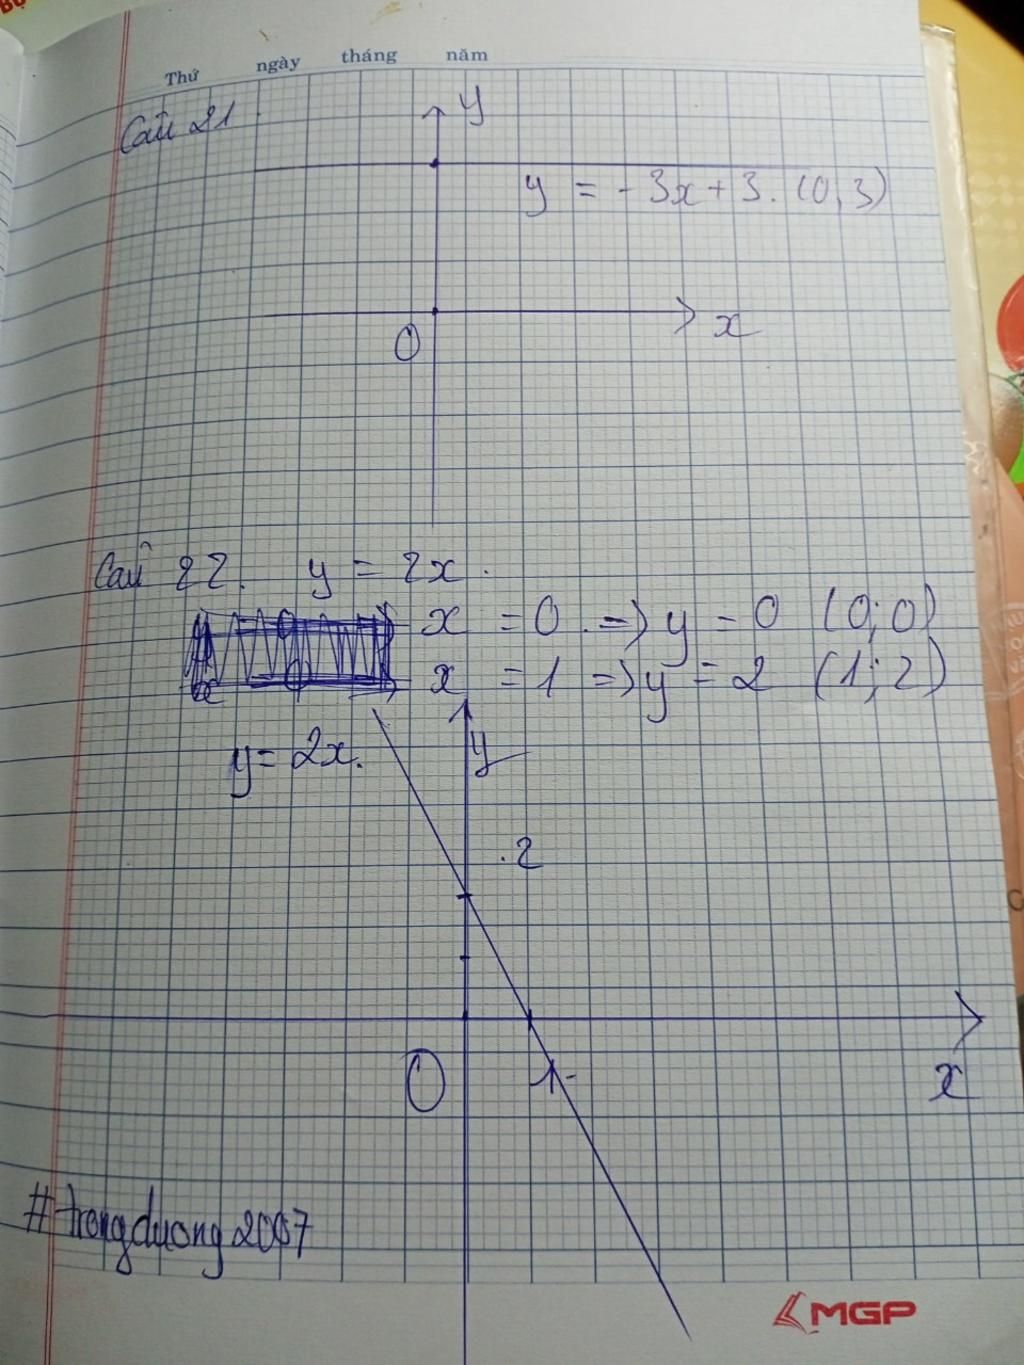 Thứ ngày tháng năm
Câu 21
y
y = -3x + 3. (0,3)
O
x
Câu 22. y = 2x.
x = 0 => y = 0 (0;0)
x = 1 => y = 2 (1;2)
y = 2x.
y
.2
O
1
x
#trongduong2007
MGP